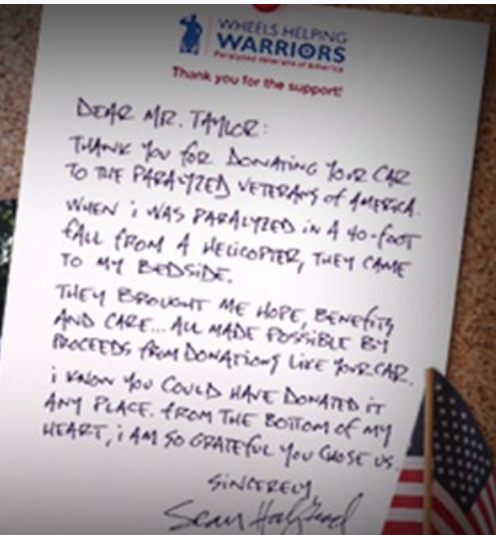 WHEELS HELPING
WARRIORS
Paralyzed Veterans of America
Thank you for the support!
DEAR MR. TAYLOR:
THANK YOU for DONATING YOUR CAR
TO THE PARALYZED VETERANS of AMERICA.
WHEN i WAS PARALYZED IN A 40-FOOT
fALL fROM A HELICOPTER, THEY CAME
TO MY BEDSIDE.
THEY BROUGHT ME HOPE, BENEfITS
AND CARE... ALL MADE POSSIBLE BY
PROCEEDS fROM DONATIONS LIKE YOUR CAR.
i KNOW YOU COULD HAVE DONATED iT
ANY PLACE. fROM THE BOTTOM Of MY
HEART, i AM SO GRATEfUL YOU CHOSE US.
SINCERELY
Sean Halstead